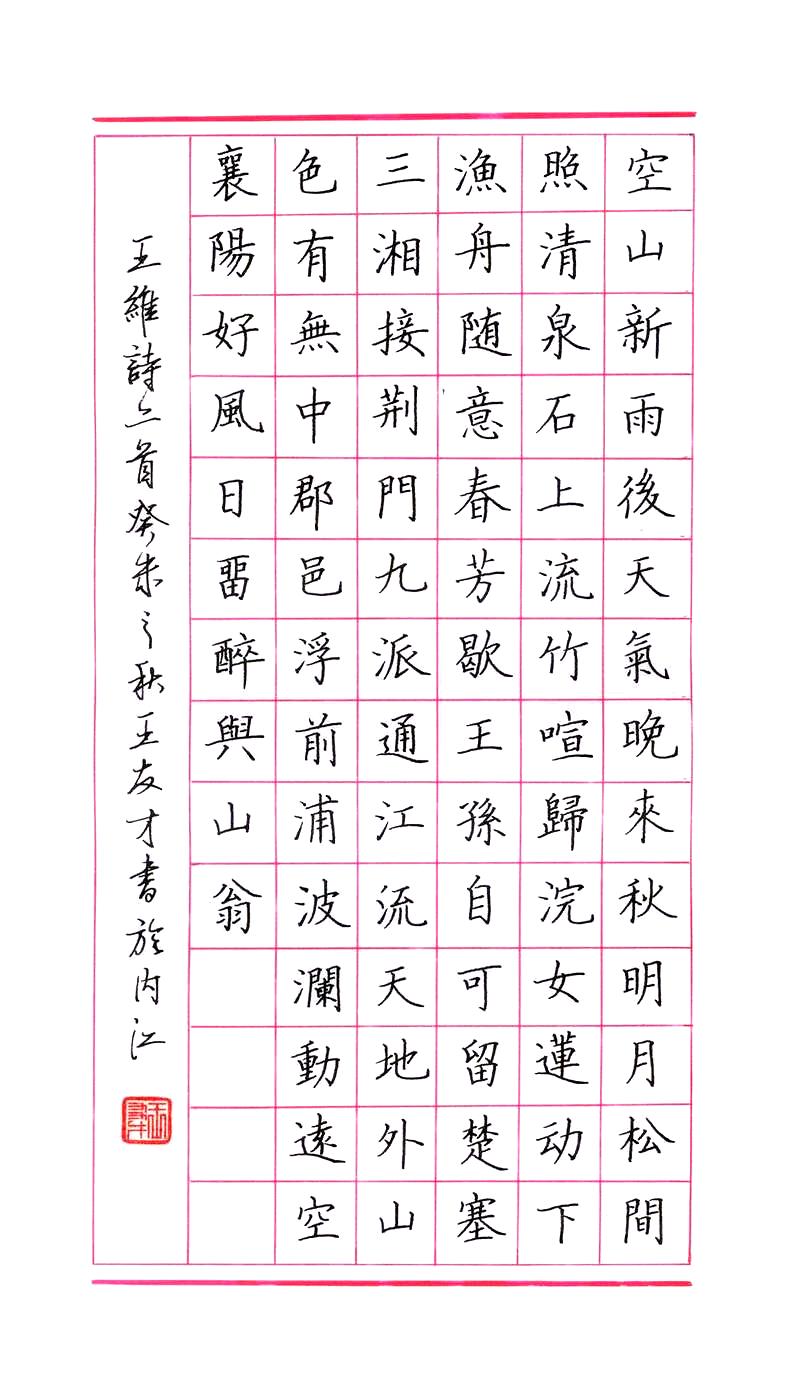 空山新雨後天氣晚來秋明月松間
照清泉石上流竹喧歸浣女蓮动下
漁舟随意春芳歇王孫自可留楚塞
三湘接荆門九派通江流天地外山
色有無中郡邑浮前浦波瀾動遠空
襄陽好風日畱醉與山翁
王維詩二首癸未之秋王友才書於内江